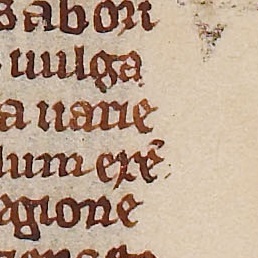 s abori
uulga
a uarie
lum ere
agione